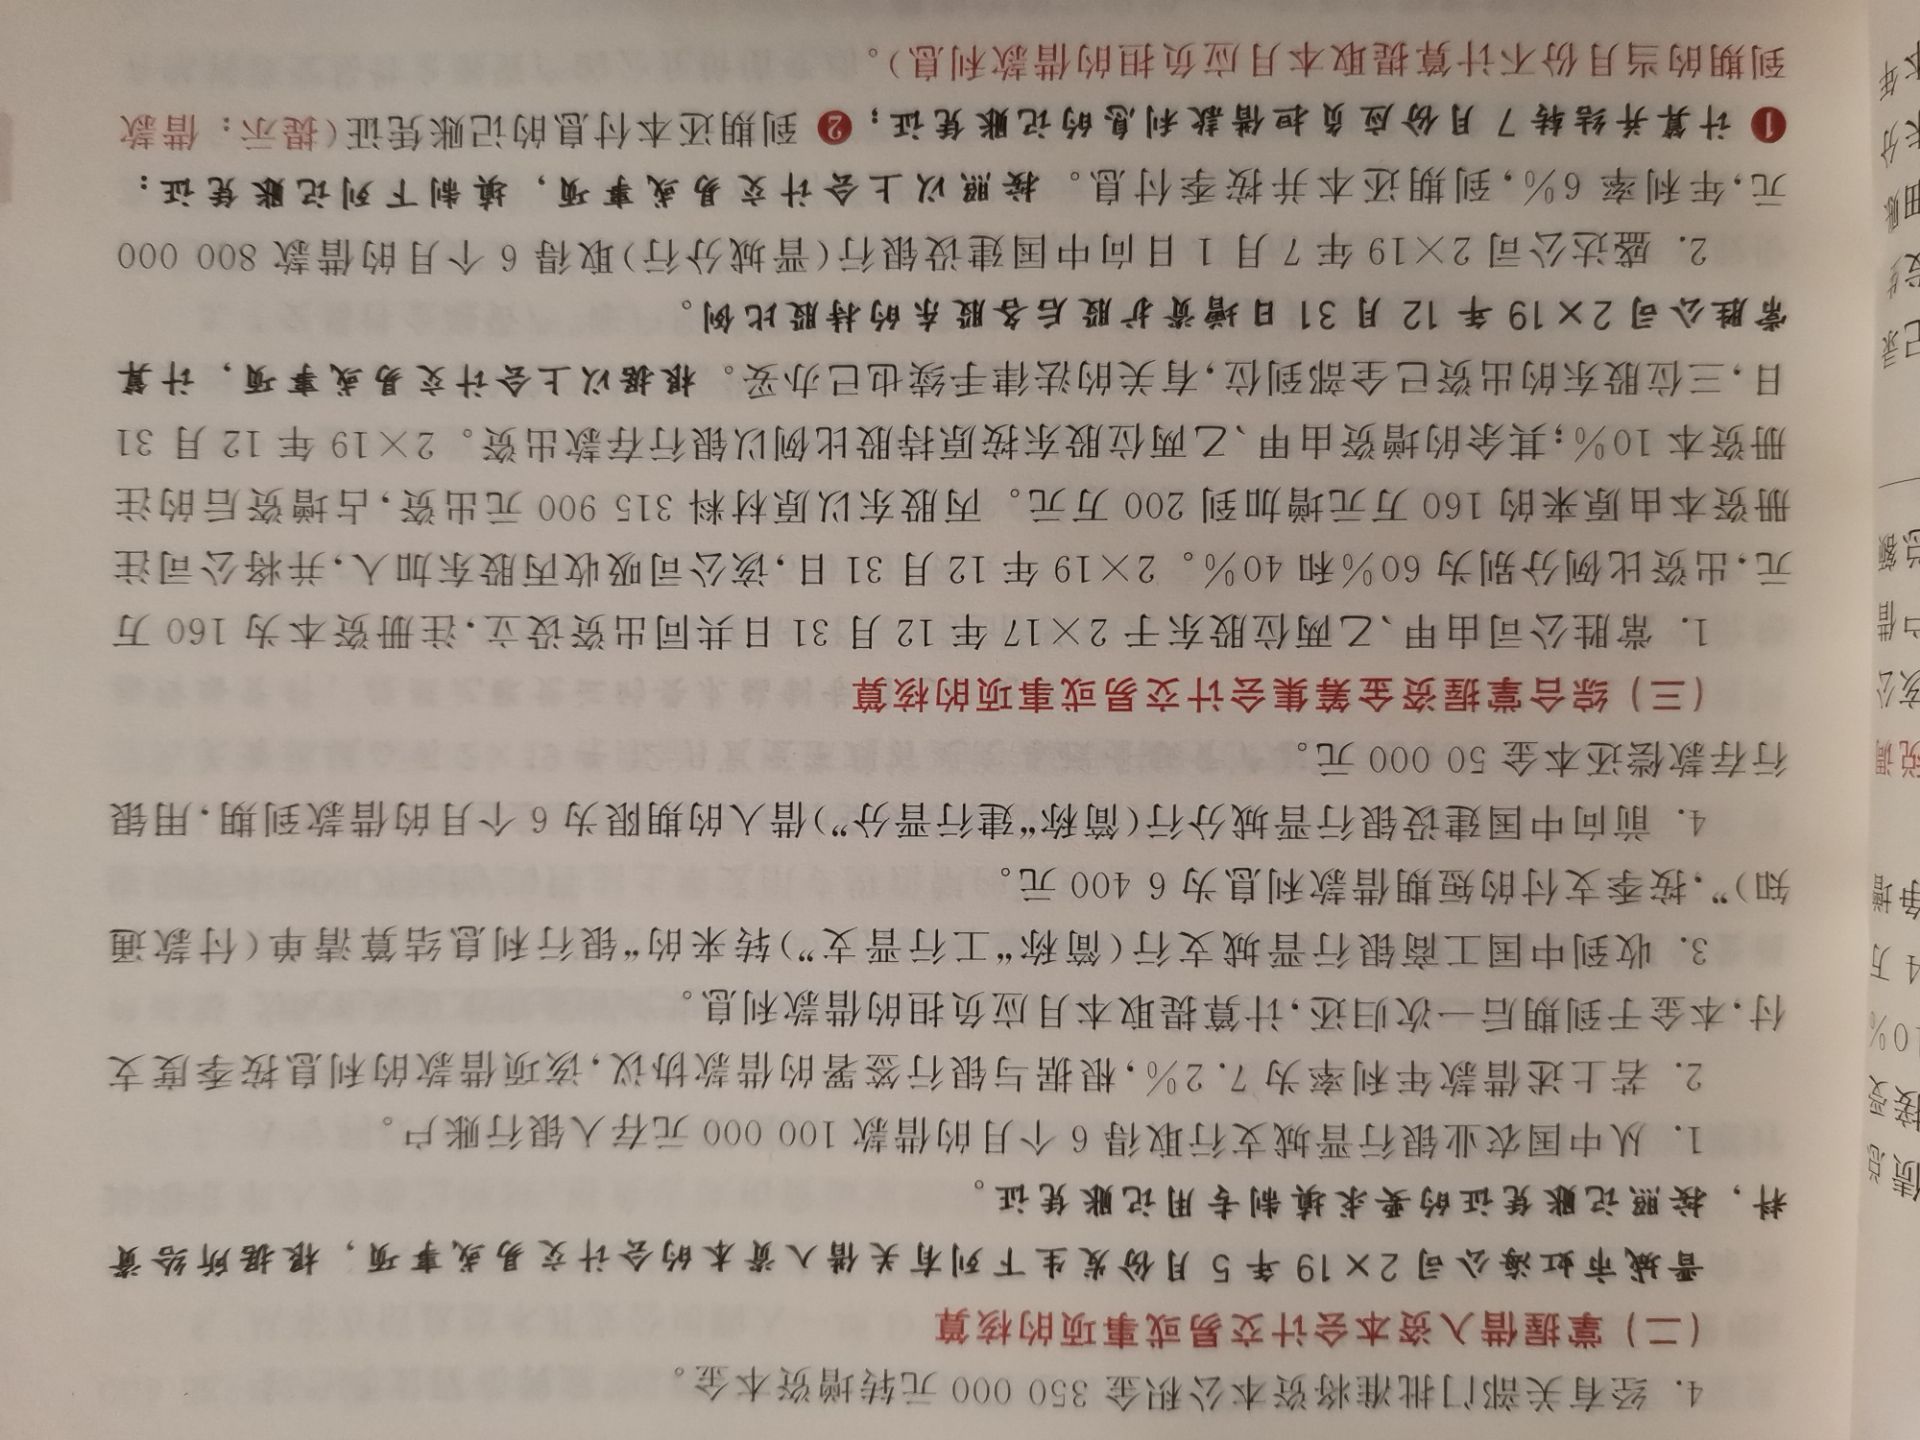 4. 经有关部门批准将资本公积金 350 000 元转增资本金。
（二）掌握借入资本会计交易或事项的核算
晋城市虹海公司 2×19 年 5 月份发生下列有关借入资本的会计交易或事项，根据所给资
料，按照记账凭证的要求填制专用记账凭证。
1. 从中国农业银行晋城支行取得 6 个月的借款 100 000 元存入银行账户。
2. 若上述借款年利率为 7.2%,根据与银行签署的借款协议,该项借款的利息按季度支
付,本金于到期后一次归还,计算提取本月应负担的借款利息。
3. 收到中国工商银行晋城支行(简称“工行晋支”)转来的“银行利息结算清单(付款通
知)”,按季支付的短期借款利息为 6 400 元。
4. 前向中国建设银行晋城分行(简称“建行晋分”)借入的期限为 6 个月的借款到期,用银
行存款偿还本金 50 000 元。
（三）综合掌握资金筹集会计交易或事项的核算
1. 常胜公司由甲、乙两位股东于 2×17 年 12 月 31 日共同出资设立,注册资本为 160 万
元,出资比例分别为 60%和 40%。2×19 年 12 月 31 日,该公司吸收丙股东加入,并将公司注
册资本由原来的 160 万元增加到 200 万元。丙股东以原材料 315 900 元出资,占增资后的注
册资本 10%;其余的增资由甲、乙两位股东按原持股比例以银行存款出资。2×19 年 12 月 31
日,三位股东的出资已全部到位,有关的法律手续也已办妥。根据以上会计交易或事项，计算
常胜公司 2×19 年 12 月 31 日增资扩股后各股东的持股比例。
2. 盛达公司 2×19 年 7 月 1 日向中国建设银行(晋城分行)取得 6 个月的借款 800 000
元,年利率 6%,到期还本并按季付息。按照以上会计交易或事项，填制下列记账凭证：
❶ 计算并结转 7 月份应负担借款利息的记账凭证；❷ 到期还本付息的记账凭证(提示：借款
到期的当月份不计算提取本月应负担的借款利息)。